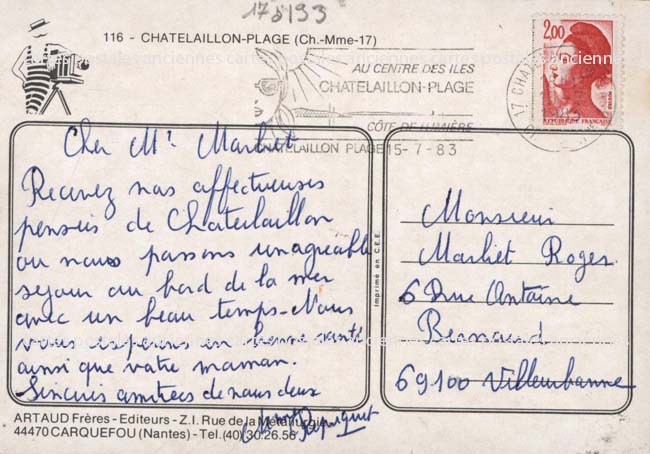 175193
116 - CHATELAILLON-PLAGE (Ch.-Mme-17)
AU CENTRE DES ILES
CHATELAILLON-PLAGE
CÔTE DE LUMIÈRE
CHATELAILLON PLAGE 15-7-83
17 CHATEL
2,00
REPUBLIQUE FRANÇAISE
cartes postales anciennes
Cher Mr Marliet
Recevez nos affectueuses
pensées de Chatelaillon
ou nous passons un agreable
sejour au bord de la mer
avec un beau temps - Nous
vous esperons en bonne santé
ainsi que votre maman.
Sincères amitiées de nous deux
Imprimé en C.E.E.
Monsieur
Marliet Roger
6 Rue Antoine
Bernard
69100 Villeurbanne
ARTAUD Frères - Editeurs - Z.I. Rue de la Métallurgie
44470 CARQUEFOU (Nantes) - Tel. (40) 30.26.56